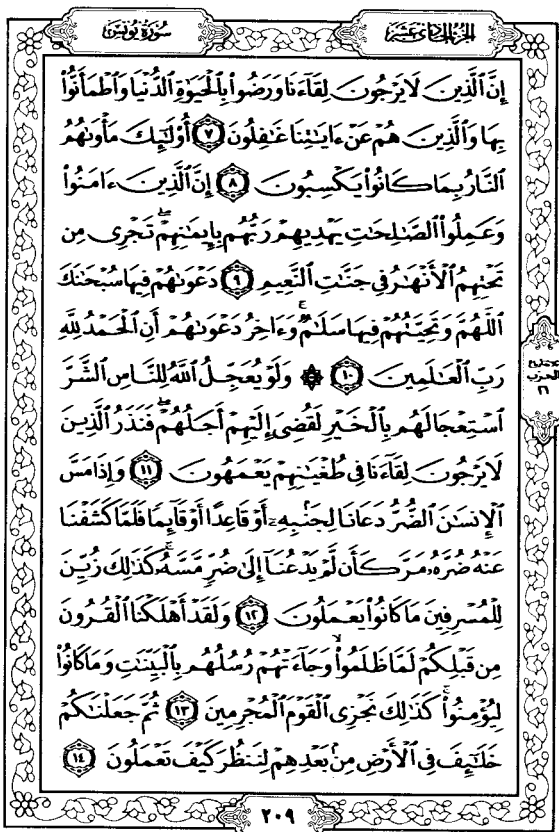 سُورَةُ يُونُسَ
الجُزْءُ الحَادِي عَشَر
إِنَّ ٱلَّذِينَ لَا يَرْجُونَ لِقَآءَنَا وَرَضُوا۟ بِٱلْحَيَوٰةِ ٱلدُّنْيَا وَٱطْمَأَنُّوا۟
بِهَا وَٱلَّذِينَ هُمْ عَنْ ءَايَٰتِنَا غَٰفِلُونَ ٧ أُو۟لَٰٓئِكَ مَأْوَىٰهُمُ
ٱلنَّارُ بِمَا كَانُوا۟ يَكْسِبُونَ ٨ إِنَّ ٱلَّذِينَ ءَامَنُوا۟
وَعَمِلُوا۟ ٱلصَّٰلِحَٰتِ يَهْدِيهِمْ رَبُّهُم بِإِيمَٰنِهِمْ ۖ تَجْرِى مِن
تَحْتِهِمُ ٱلْأَنْهَٰرُ فِى جَنَّٰتِ ٱلنَّعِيمِ ٩ دَعْوَىٰهُمْ فِيهَا سُبْحَٰنَكَ
ٱللَّهُمَّ وَتَحِيَّتُهُمْ فِيهَا سَلَٰمٌ ۚ وَءَاخِرُ دَعْوَىٰهُمْ أَنِ ٱلْحَمْدُ لِلَّهِ
رَبِّ ٱلْعَٰلَمِينَ ١٠ ۞ وَلَوْ يُعَجِّلُ ٱللَّهُ لِلنَّاسِ ٱلشَّرَّ
ٱسْتِعْجَالَهُم بِٱلْخَيْرِ لَقُضِىَ إِلَيْهِمْ أَجَلُهُمْ ۖ فَنَذَرُ ٱلَّذِينَ
لَا يَرْجُونَ لِقَآءَنَا فِى طُغْيَٰنِهِمْ يَعْمَهُونَ ١١ وَإِذَا مَسَّ
ٱلْإِنسَٰنَ ٱلضُّرُّ دَعَانَا لِجَنۢبِهِۦٓ أَوْ قَاعِدًا أَوْ قَآئِمًا فَلَمَّا كَشَفْنَا
عَنْهُ ضُرَّهُۥ مَرَّ كَأَن لَّمْ يَدْعُنَآ إِلَىٰ ضُرٍّ مَّسَّهُۥ ۚ كَذَٰلِكَ زُيِّنَ
لِلْمُسْرِفِينَ مَا كَانُوا۟ يَعْمَلُونَ ١٢ وَلَقَدْ أَهْلَكْنَا ٱلْقُرُونَ
مِن قَبْلِكُمْ لَمَّا ظَلَمُوا۟ ۙ وَجَآءَتْهُمْ رُسُلُهُم بِٱلْبَيِّنَٰتِ وَمَا كَانُوا۟
لِيُؤْمِنُوا۟ ۚ كَذَٰلِكَ نَجْزِى ٱلْقَوْمَ ٱلْمُجْرِمِينَ ١٣ ثُمَّ جَعَلْنَٰكُمْ
خَلَٰٓئِفَ فِى ٱلْأَرْضِ مِنۢ بَعْدِهِمْ لِنَنظُرَ كَيْفَ تَعْمَلُونَ ١٤
الحزب
٢١
٢٠٩